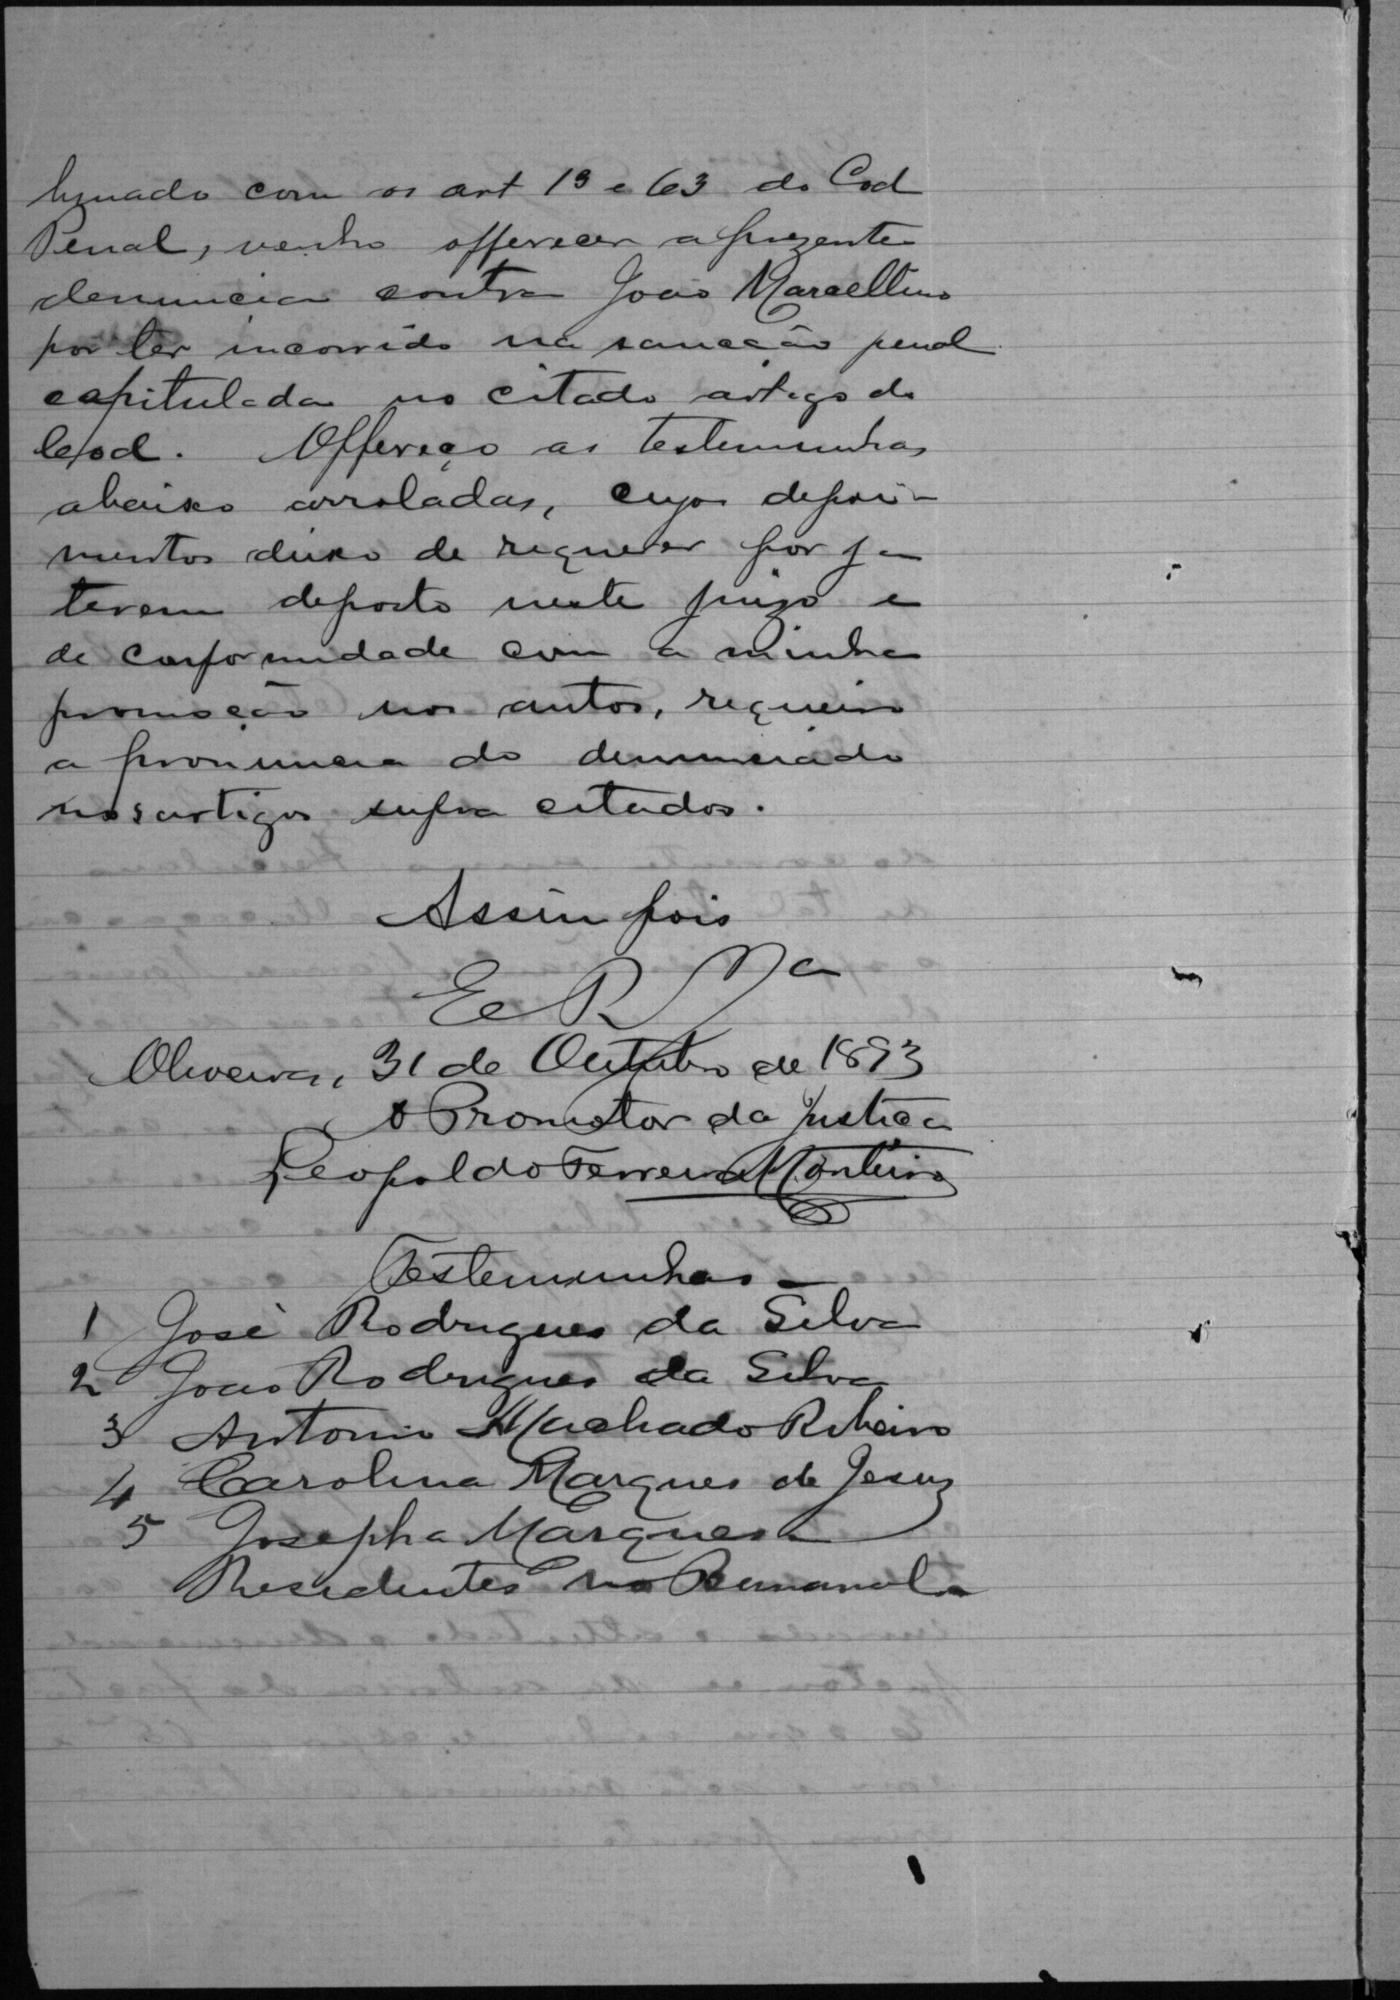 binado com os art 13 e 63 do Cod
Penal, venho offerecer a prezente
denuncia contra João Marcellino
por ter incorrido na sancção penal
capitulada no citado artigo do
Cod. Offereço as testemunhas
abaixo arroladas, cujos depoi-
mentos deixo de requerer por já
terem deposto neste juizo e
de conformidade com a minha
promoção nos autos, requeiro
a pronuncia do denunciado
nos artigos supra citados.
Assim pois
E R Mca
Oliveira, 31 de Outubro de 1893
O Promotor da Justiça
Leopoldo Ferreira Monteiro
Testemunhas
1 José Rodrigues da Silva
2 João Rodrigues da Silva
3 Antonio Machado Ribeiro
4 Carolina Marques de Jesus
5 Josepha Marques
Residentes no